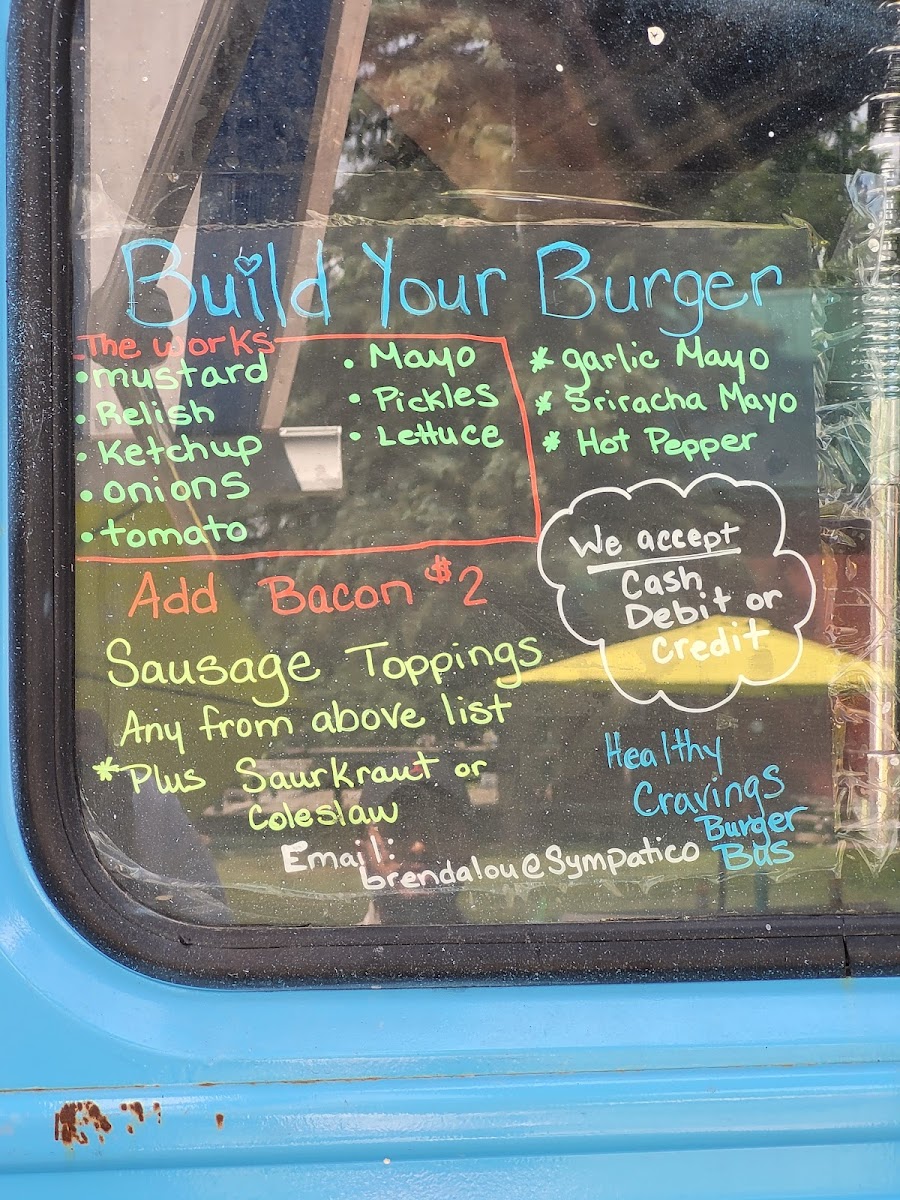 Build Your Burger
The works
• mustard
• Relish
• Ketchup
• onions
• tomato
• Mayo
• Pickles
• Lettuce
* garlic Mayo
* Sriracha Mayo
* Hot Pepper
We accept
Cash
Debit or
Credit
Add Bacon $2
Sausage Toppings
Any from above list
*Plus Saurkraut or
Coleslaw
Healthy
Cravings
Burger
Bus
Email:
brendalou@Sympatico